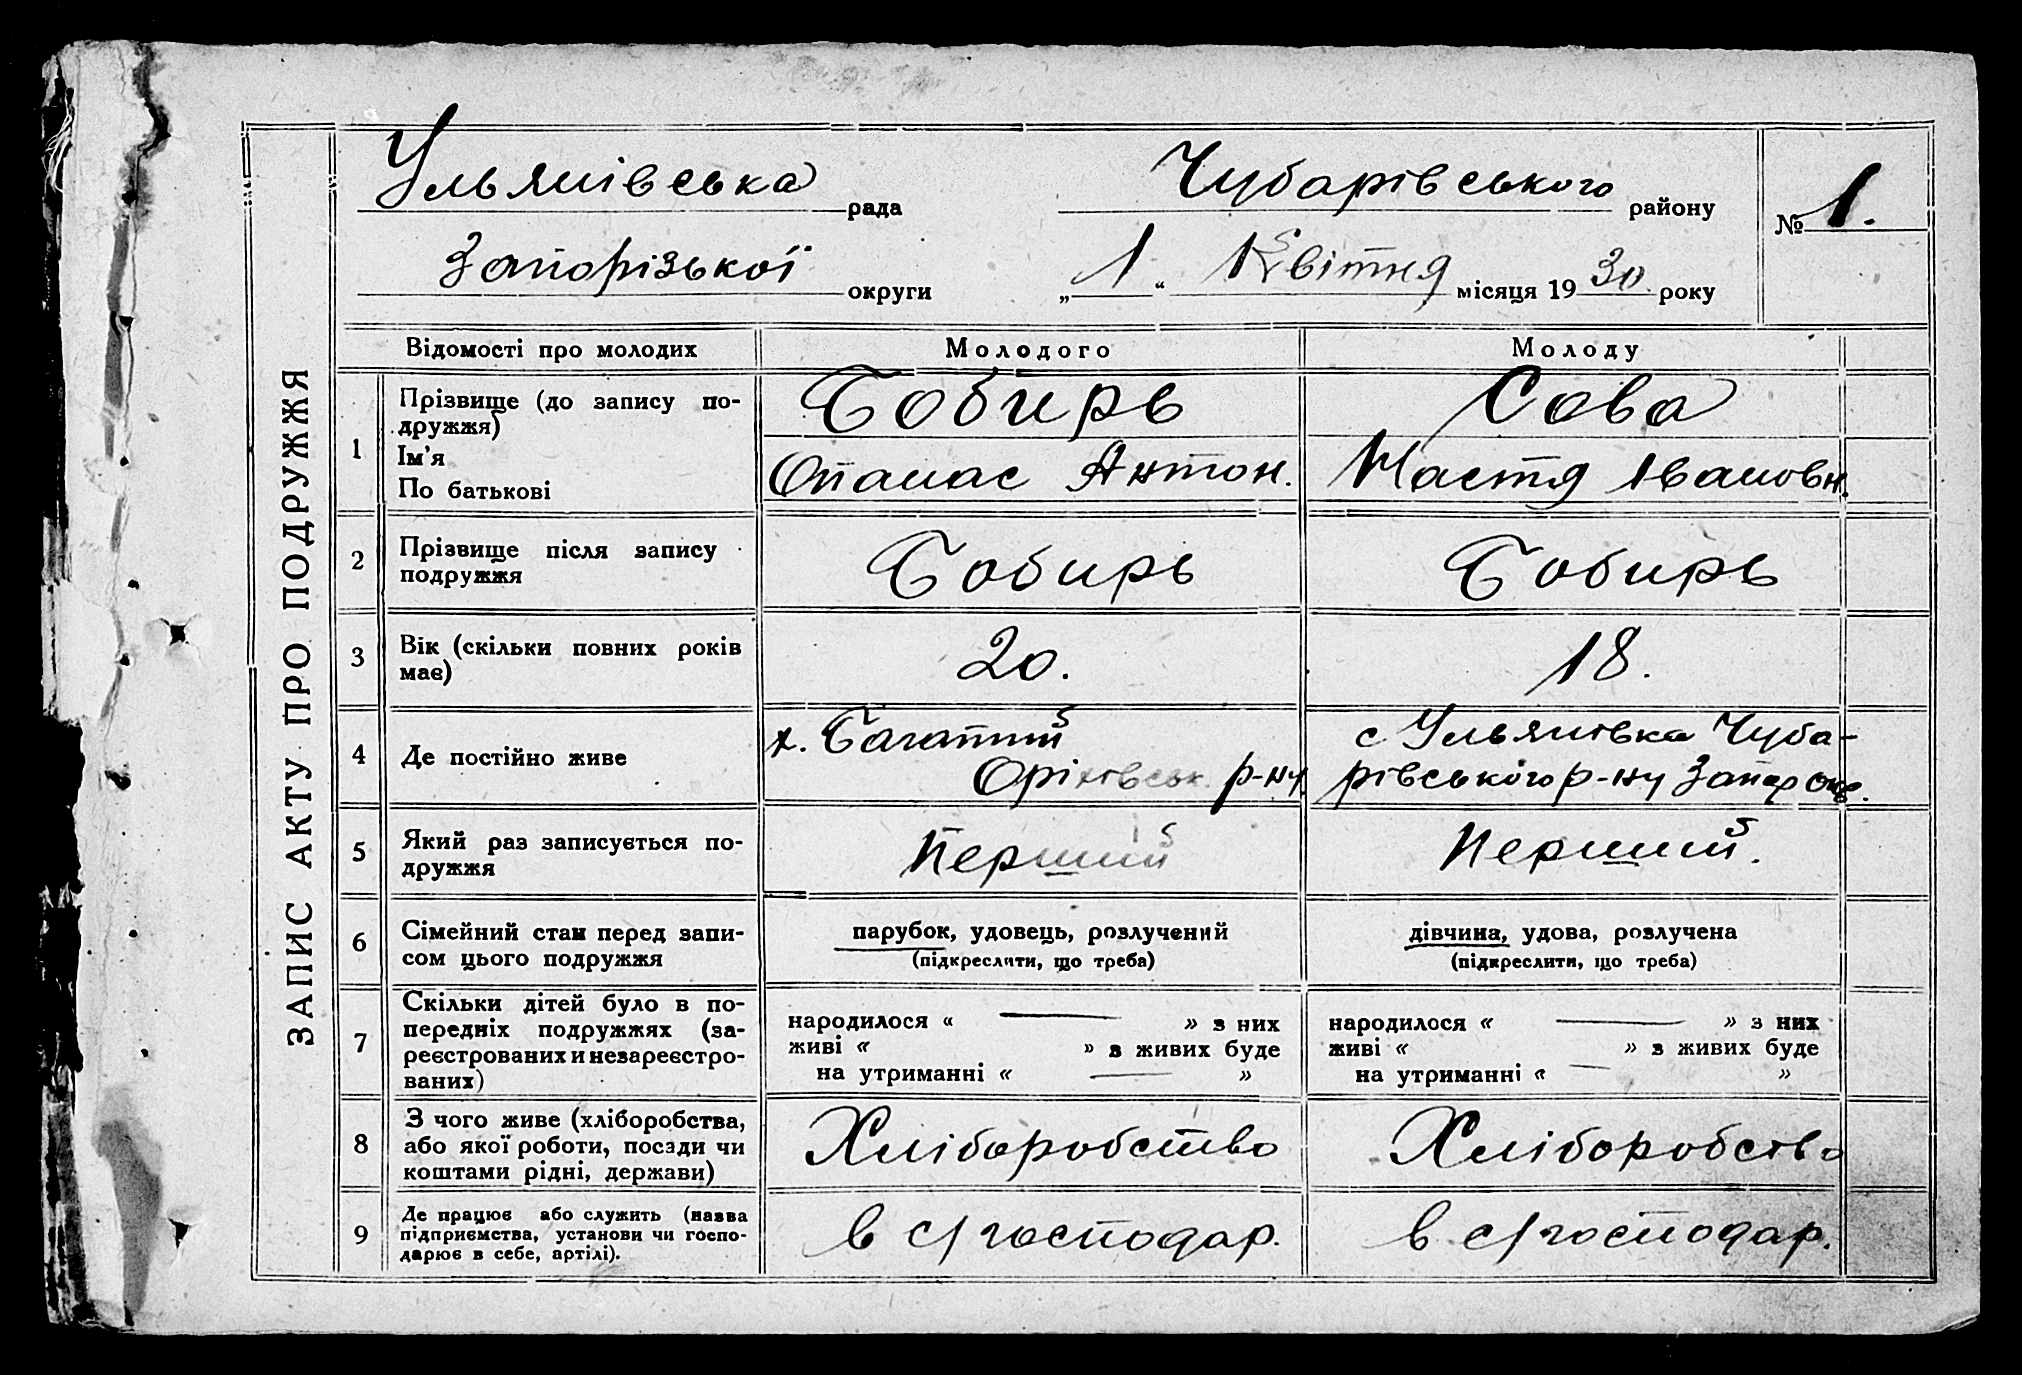 ЗАПИС АКТУ ПРО ПОДРУЖЖЯ
Ульянівська рада
Чубарівського району
№ 1.
Запорізької округи
„ 1 “ Квітня місяця 19 30 року
Відомості про молодих
Молодого
Молоду
1
Прізвище (до запису по-
дружжя)
Ім'я
По батькові
Бобирь
Опанас Антон.
Сова
Настя Івановн.
2
Прізвище після запису
подружжя
Бобирь
Бобирь
3
Вік (скільки повних років
має)
20.
18.
4
Де постійно живе
х. Багатий
Оріхівськ. р-ну
с Ульянівка Чуба-
рівського р-ну Запор Окр.
5
Який раз записується по-
дружжя
Перший
Перший.
6
Сімейний стан перед запи-
сом цього подружжя
парубок, удовець, розлучений
(підкреслити, що треба)
дівчина, удова, розлучена
(підкреслити, що треба)
7
Скільки дітей було в по-
передніх подружжях (за-
реєстрованих и незареєстро-
ваних)
народилося « — » з них
живі « » з живих буде
на утриманні « — »
народилося « — » з них
живі « » з живих буде
на утриманні « — »
8
З чого живе (хліборобства,
або якої роботи, посади чи
коштами рідні, держави)
Хліборобство
Хліборобство
9
Де працює або служить (назва
підприємства, установи чи госпо-
дарює в себе, артілі).
в с/господар.
в с/господар.